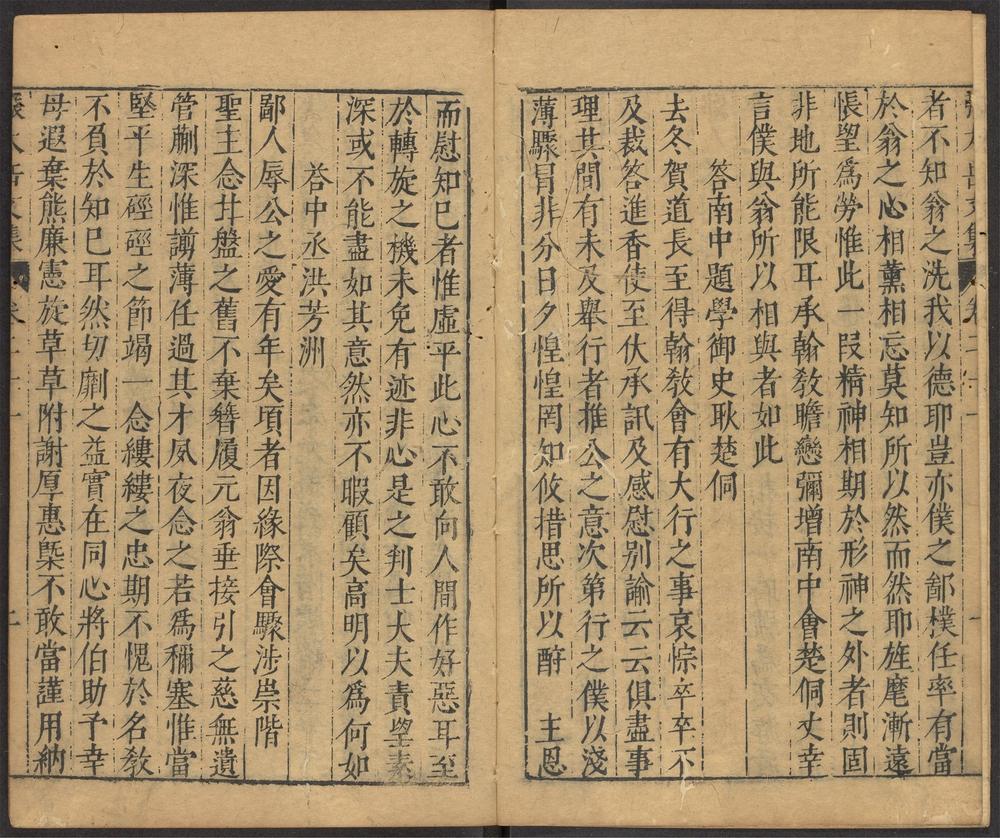 張太岳文集
卷二十一
一
者不知翁之洗我以德耶豈亦僕之鄙樸任率有當
於翁之心相薰相忘莫知所以然而然耶旌麾漸遠
悵望爲勞惟此一叚精神相期於形神之外者則固
非地所能限耳承翰敎瞻戀彌增南中會楚侗丈幸
言僕與翁所以相與者如此
答南中題學御史耿楚侗
去冬賀道長至得翰敎會有大行之事哀悰卒卒不
及裁答進香使至伏承訊及感慰别諭云云俱盡事
理其間有未及舉行者推公之意次第行之僕以淺
薄驟冒非分日夕惶惶罔知攸措思所以酧　主恩
而慰知巳者惟虛平此心不敢向人間作好惡耳至
於轉旋之機未免有迹非心是之判士大夫責望素
深或不能盡如其意然亦不暇顧矣高明以爲何如
答中丞洪芳洲
鄙人辱公之愛有年矣頃者因緣際會驟涉崇階
聖主念甘盤之舊不棄簪履元翁垂接引之慈無遺
管蒯深惟譾薄任過其才夙夜念之若爲稱塞惟當
堅平生硜硜之節竭一念縷縷之忠期不愧於名敎
不負於知巳耳然切劘之益實在同心將伯助予幸
毋遐棄熊廉憲旋草草附謝厚惠槩不敢當謹用納
張太岳文集
卷二十一
二